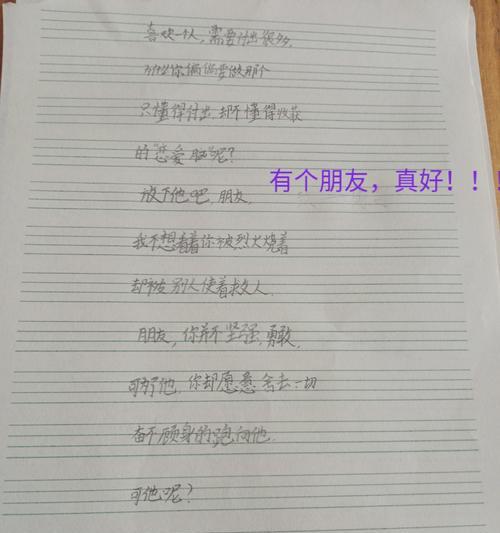 喜欢一个人，需要付出很多。
你偏偏要做那个
只懂得付出，却不懂得收获
的“恋爱脑”呢？
放下他吧，朋友。
有个朋友，真好！！！
我不想看着你被烈火烧着
却被别人使着救人。
朋友，你并不坚强，勇敢，
可为了他，你却愿意舍去一切
奋不顾身的跑向他。
可他呢？